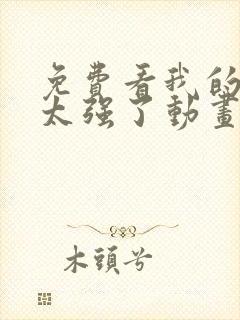 免費看我的
太强了動畫
木頭兮